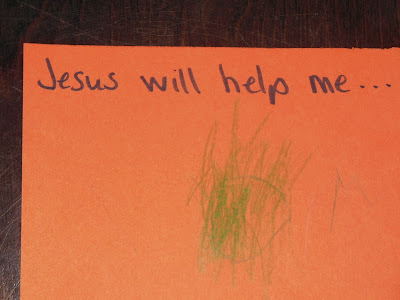 Jesus will help me...